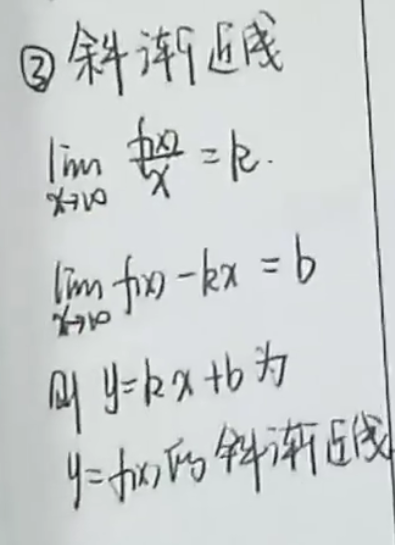 ③ 斜渐近线
lim x→∞ f(x)/x = k.
lim x→∞ f(x) - kx = b
则 y=kx+b 为
y=f(x) 的斜渐近线